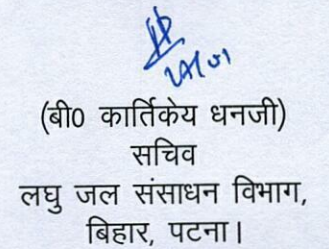 (बी0 कार्तिकेय धनजी)
सचिव
लघु जल संसाधन विभाग,
बिहार, पटना।